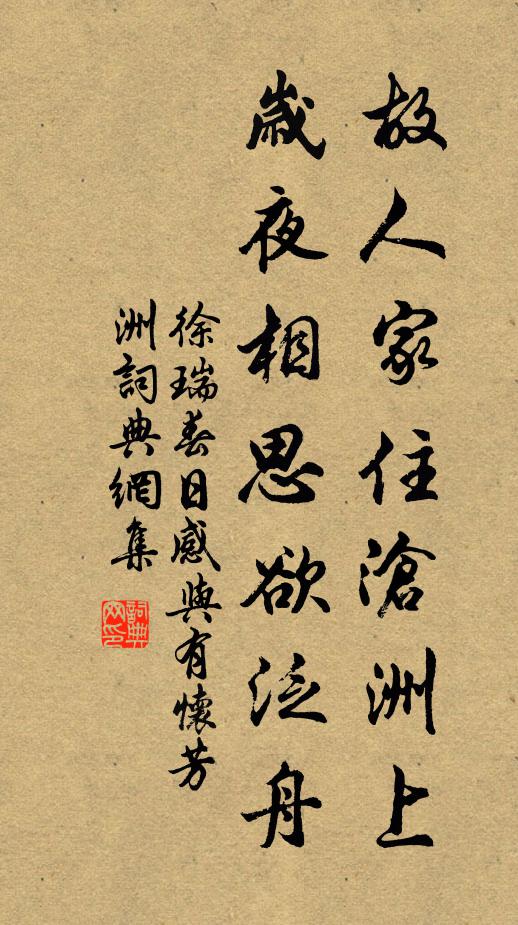 故人家住滄洲上
歲夜相思欲泛舟
徐瑞春日感興有懷芳
洲詞典網集
詞典網印